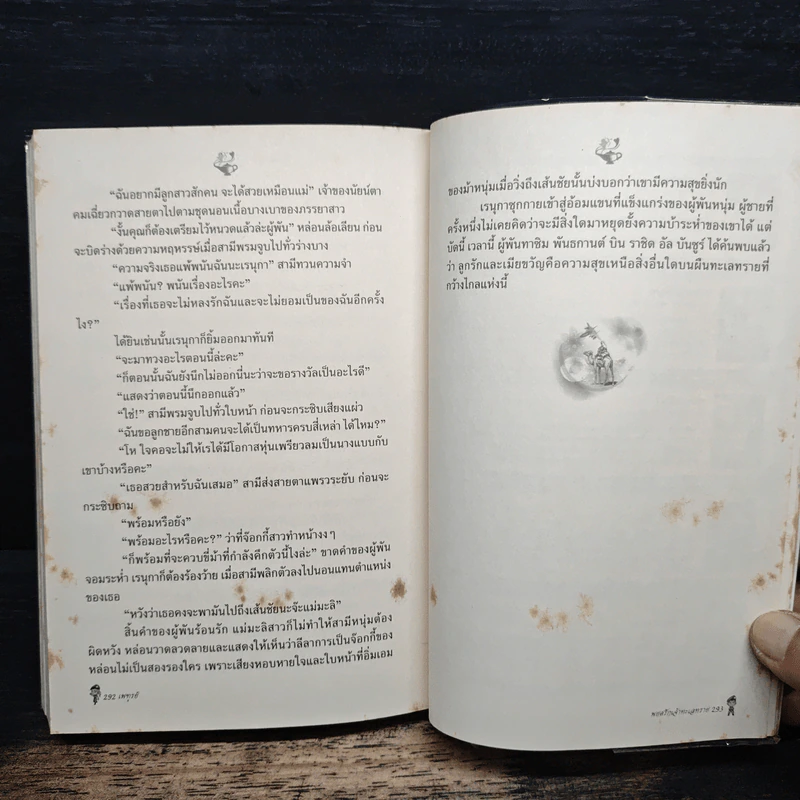 “ฉันอยากมีลูกสาวสักคน จะได้สวยเหมือนแม่” เจ้าของนัยน์ตา
คมเฉี่ยวกวาดสายตาไปตามชุดนอนเนื้อบางเบาของภรรยาสาว
“งั้นคุณก็ต้องเตรียมไว้หนวดแล้วล่ะผู้พัน” หล่อนล้อเลียน ก่อน
จะบิดร่างด้วยความหฤหรรษ์เมื่อสามีพรมจูบไปทั่วร่างบาง
“ความจริงเธอแพ้พนันฉันนะเรนุกา” สามีทวนความจำ
“แพ้พนัน? พนันเรื่องอะไรคะ”
“เรื่องที่เธอจะไม่หลงรักฉันและจะไม่ยอมเป็นของฉันอีกครั้ง
ไง?”
ได้ยินเช่นนั้นเรนุกาก็ยิ้มออกมาทันที
“จะมาทวงอะไรตอนนี้ล่ะคะ”
“ก็ตอนนั้นฉันยังนึกไม่ออกนี่นะว่าจะขอรางวัลเป็นอะไรดี”
“แสดงว่าตอนนี้นึกออกแล้ว”
“ใช่!” สามีพรมจูบไปทั่วใบหน้า ก่อนจะกระซิบเสียงแผ่ว
“ฉันขอลูกชายอีกสามคนจะได้เป็นทหารครบสี่เหล่า ได้ไหม?”
“โห ใจคอจะไม่ให้เรได้มีโอกาสหุ่นเพรียวลมเป็นนางแบบกับ
เขาบ้างหรือคะ”
“เธอสวยสำหรับฉันเสมอ” สามีส่งสายตาแพรวระยับ ก่อนจะ
กระซิบถาม
“พร้อมหรือยัง”
“พร้อมอะไรหรือคะ?” ว่าที่จ๊อกกี้สาวทำหน้างงๆ
“ก็พร้อมที่จะควบขี่ม้าที่กำลังคึกตัวนี้ไงล่ะ” ขาดคำของผู้พัน
จอมระห่ำ เรนุกาก็ต้องร้องว้าย เมื่อสามีพลิกตัวลงไปนอนแทนตำแหน่ง
ของเธอ
“หวังว่าเธอคงจะพามันไปถึงเส้นชัยนะจ๊ะแม่มะลิ”
สิ้นคำของผู้พันร้อนรัก แม่มะลิสาวก็ไม่ทำให้สามีหนุ่มต้อง
ผิดหวัง หล่อนวาดลวดลายและแสดงให้เห็นว่าลีลาการเป็นจ๊อกกี้ของ
หล่อนไม่เป็นสองรองใคร เพราะเสียงหอบหายใจและใบหน้าที่อิ่มเอม
292 เพทุรยี
ของม้าหนุ่มเมื่อวิ่งถึงเส้นชัยนั้นบ่งบอกว่าเขามีความสุขยิ่งนัก
เรนุกาซุกกายเข้าสู่อ้อมแขนที่แข็งแกร่งของผู้พันหนุ่ม ผู้ชายที่
ครั้งหนึ่งไม่เคยคิดว่าจะมีสิ่งใดมาหยุดยั้งความบ้าระห่ำของเขาได้ แต่
บัดนี้ เวลานี้ ผู้พันทาชิม พันธกานต์ บิน ราชิด อัล บันชูร์ ได้ค้นพบแล้ว
ว่า ลูกรักและเมียขวัญคือความสุขเหนือสิ่งอื่นใดบนผืนทะเลทรายที่
กว้างไกลแห่งนี้
293